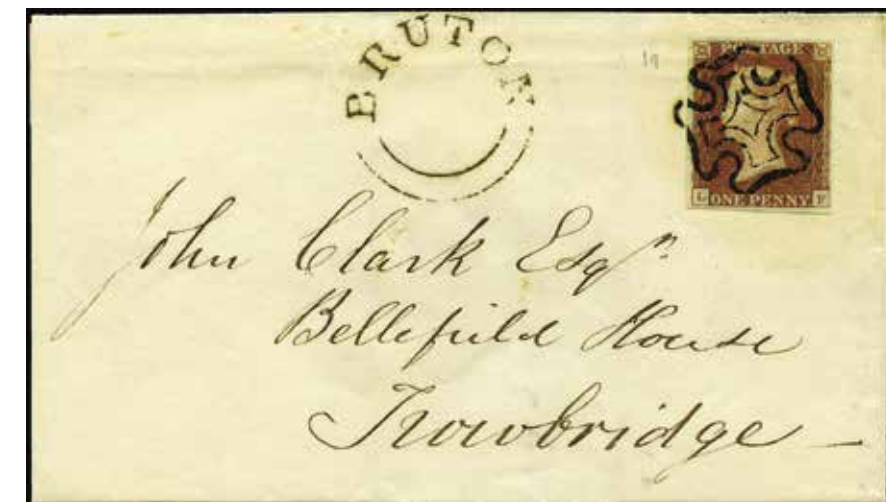 BRUTON
19
POSTAGE
L ONE PENNY F
John Clark Esqr.
Bellefield House
Trowbridge